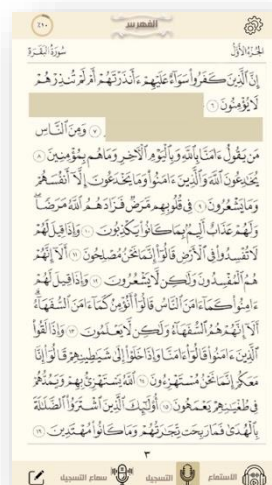 الفهرس
الجزء الأول سورة البقرة
إِنَّ ٱلَّذِينَ كَفَرُوا۟ سَوَآءٌ عَلَيْهِمْ ءَأَنذَرْتَهُمْ أَمْ لَمْ تُنذِرْهُمْ
لَا يُؤْمِنُونَ ٦
٧ وَمِنَ ٱلنَّاسِ
مَن يَقُولُ ءَامَنَّا بِٱللَّهِ وَبِٱلْيَوْمِ ٱلْءَاخِرِ وَمَا هُم بِمُؤْمِنِينَ ٨
يُخَٰدِعُونَ ٱللَّهَ وَٱلَّذِينَ ءَامَنُوا۟ وَمَا يَخْدَعُونَ إِلَّآ أَنفُسَهُمْ
وَمَا يَشْعُرُونَ ٩ فِى قُلُوبِهِم مَّرَضٌ فَزَادَهُمُ ٱللَّهُ مَرَضًا
وَلَهُمْ عَذَابٌ أَلِيمٌۢ بِمَا كَانُوا۟ يَكْذِبُونَ ١٠ وَإِذَا قِيلَ لَهُمْ
لَا تُفْسِدُوا۟ فِى ٱلْأَرْضِ قَالُوٓا۟ إِنَّمَا نَحْنُ مُصْلِحُونَ ١١ أَلَآ إِنَّهُمْ
هُمُ ٱلْمُفْسِدُونَ وَلَٰكِن لَّا يَشْعُرُونَ ١٢ وَإِذَا قِيلَ لَهُمْ
ءَامِنُوا۟ كَمَآ ءَامَنَ ٱلنَّاسُ قَالُوٓا۟ أَنُؤْمِنُ كَمَآ ءَامَنَ ٱلسُّفَهَآءُ
أَلَآ إِنَّهُمْ هُمُ ٱلسُّفَهَآءُ وَلَٰكِن لَّا يَعْلَمُونَ ١٣ وَإِذَا لَقُوا۟
ٱلَّذِينَ ءَامَنُوا۟ قَالُوٓا۟ ءَامَنَّا وَإِذَا خَلَوْا۟ إِلَىٰ شَيَٰطِينِهِمْ قَالُوٓا۟ إِنَّا
مَعَكُمْ إِنَّمَا نَحْنُ مُسْتَهْزِءُونَ ١٤ ٱللَّهُ يَسْتَهْزِئُ بِهِمْ وَيَمُدُّهُمْ
فِى طُغْيَٰنِهِمْ يَعْمَهُونَ ١٥ أُو۟لَٰٓئِكَ ٱلَّذِينَ ٱشْتَرَوُا۟ ٱلضَّلَٰلَةَ
بِٱلْهُدَىٰ فَمَا رَبِحَت تِّجَٰرَتُهُمْ وَمَا كَانُوا۟ مُهْتَدِينَ ١٦
٣
الاستماع التسجيل سماع التسجيل